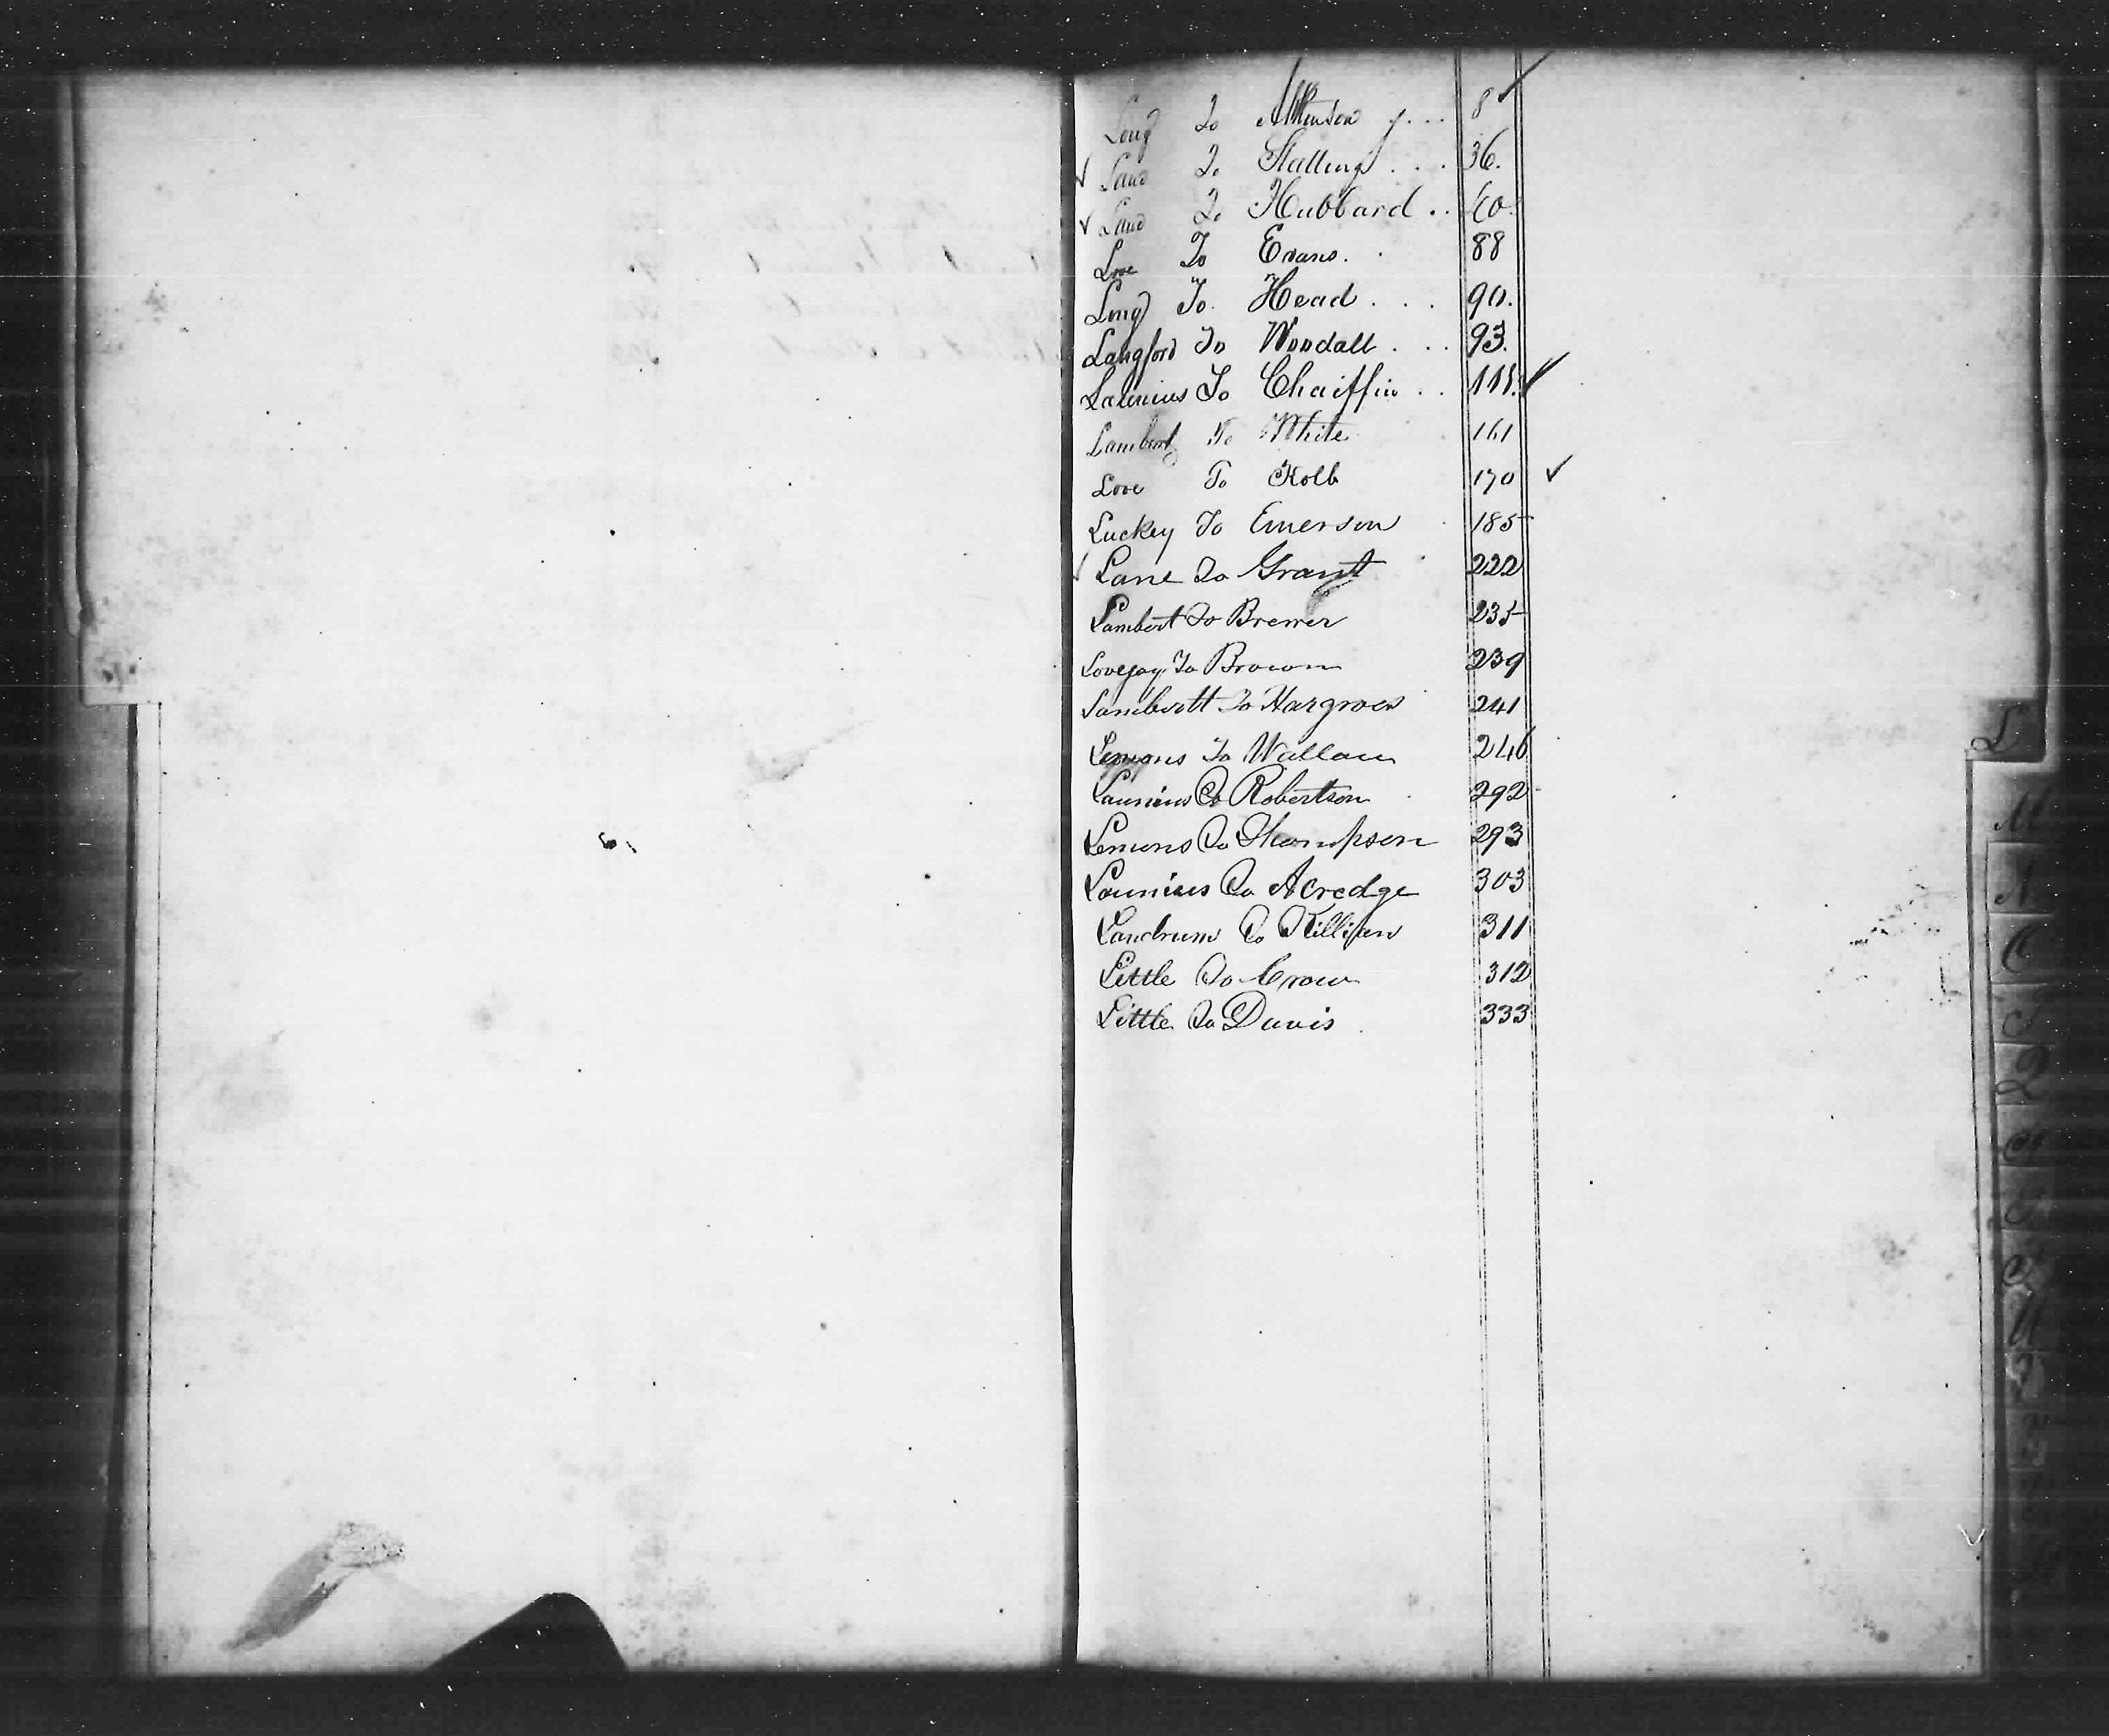 Long To Atkinson 8 ✓
✓ Land To Stallings . . . 36.
✓ Land To Hubbard . . 60.
Love To Evans. . 88
Long To Head . . . 90.
Langford To Woodall . . . 93.
Launius To Chaiffin . . 111. ✓
Lambert To White 161
Love To Kolb 170 ✓
Luckey To Emerson 185
✓ Lane To Grant 222
Lambert To Brewer 235
Lovejoy To Brown 239
Lambertt To Hargroves 241
Lemons To Wallace 246
Launius To Robertson 292
Lemons To Thompson 293
Launius To Acredge 303
Landrum To Killian 311
Little To Crow 312
Little To Davis 333
L
M